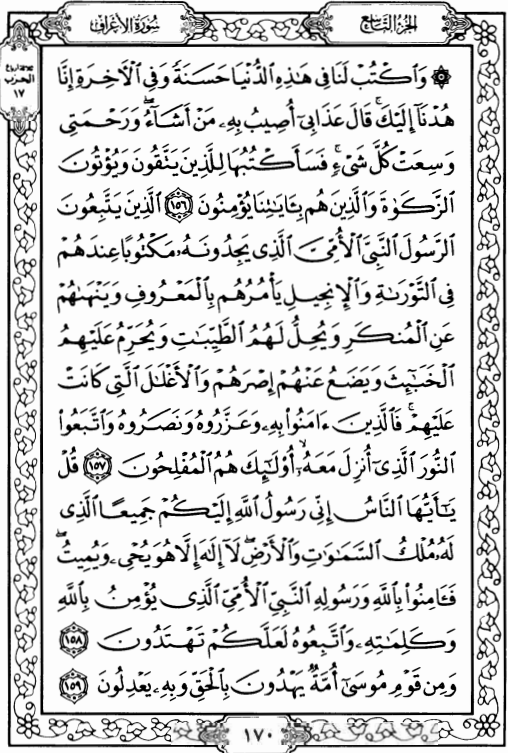 سُورَةُ الأَعْرَافِ
الجُزْءُ التَّاسِعُ
الحزب
١٧
۞ وَٱكْتُبْ لَنَا فِى هَٰذِهِ ٱلدُّنْيَا حَسَنَةً وَفِى ٱلْأَخِرَةِ إِنَّا
هُدْنَآ إِلَيْكَ ۚ قَالَ عَذَابِىٓ أُصِيبُ بِهِۦ مَنْ أَشَآءُ ۖ وَرَحْمَتِى
وَسِعَتْ كُلَّ شَىْءٍ ۚ فَسَأَكْتُبُهَا لِلَّذِينَ يَتَّقُونَ وَيُؤْتُونَ
ٱلزَّكَوٰةَ وَٱلَّذِينَ هُم بِـَٔايَٰتِنَا يُؤْمِنُونَ ١٥٦ ٱلَّذِينَ يَتَّبِعُونَ
ٱلرَّسُولَ ٱلنَّبِىَّ ٱلْأُمِّىَّ ٱلَّذِى يَجِدُونَهُۥ مَكْتُوبًا عِندَهُمْ
فِى ٱلتَّوْرَىٰةِ وَٱلْإِنجِيلِ يَأْمُرُهُم بِٱلْمَعْرُوفِ وَيَنْهَىٰهُمْ
عَنِ ٱلْمُنكَرِ وَيُحِلُّ لَهُمُ ٱلطَّيِّبَٰتِ وَيُحَرِّمُ عَلَيْهِمُ
ٱلْخَبَٰٓئِثَ وَيَضَعُ عَنْهُمْ إِصْرَهُمْ وَٱلْأَغْلَٰلَ ٱلَّتِى كَانَتْ
عَلَيْهِمْ ۚ فَٱلَّذِينَ ءَامَنُوا۟ بِهِۦ وَعَزَّرُوهُ وَنَصَرُوهُ وَٱتَّبَعُوا۟
ٱلنُّورَ ٱلَّذِىٓ أُنزِلَ مَعَهُۥٓ ۙ أُو۟لَٰٓئِكَ هُمُ ٱلْمُفْلِحُونَ ١٥٧ قُلْ
يَٰٓأَيُّهَا ٱلنَّاسُ إِنِّى رَسُولُ ٱللَّهِ إِلَيْكُمْ جَمِيعًا ٱلَّذِى
لَهُۥ مُلْكُ ٱلسَّمَٰوَٰتِ وَٱلْأَرْضِ ۖ لَآ إِلَٰهَ إِلَّا هُوَ يُحْىِۦ وَيُمِيتُ ۖ
فَـَٔامِنُوا۟ بِٱللَّهِ وَرَسُولِهِ ٱلنَّبِىِّ ٱلْأُمِّىِّ ٱلَّذِى يُؤْمِنُ بِٱللَّهِ
وَكَلِمَٰتِهِۦ وَٱتَّبِعُوهُ لَعَلَّكُمْ تَهْتَدُونَ ١٥٨
وَمِن قَوْمِ مُوسَىٰٓ أُمَّةٌ يَهْدُونَ بِٱلْحَقِّ وَبِهِۦ يَعْدِلُونَ ١٥٩
١٧٠